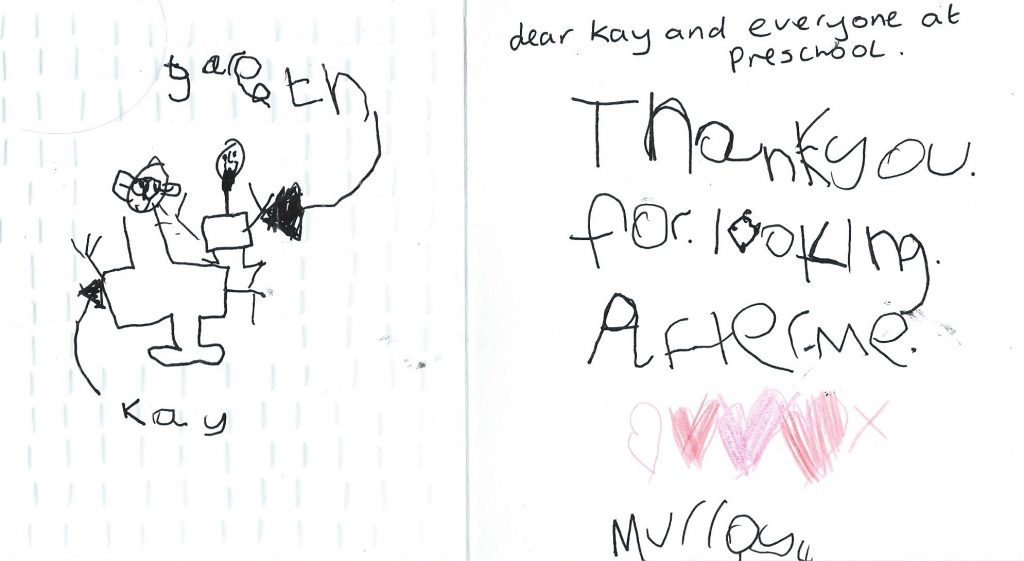 gareth
Kay
dear Kay and everyone at
preschool.
Thankyou.
for. looking.
After.me.
Murray